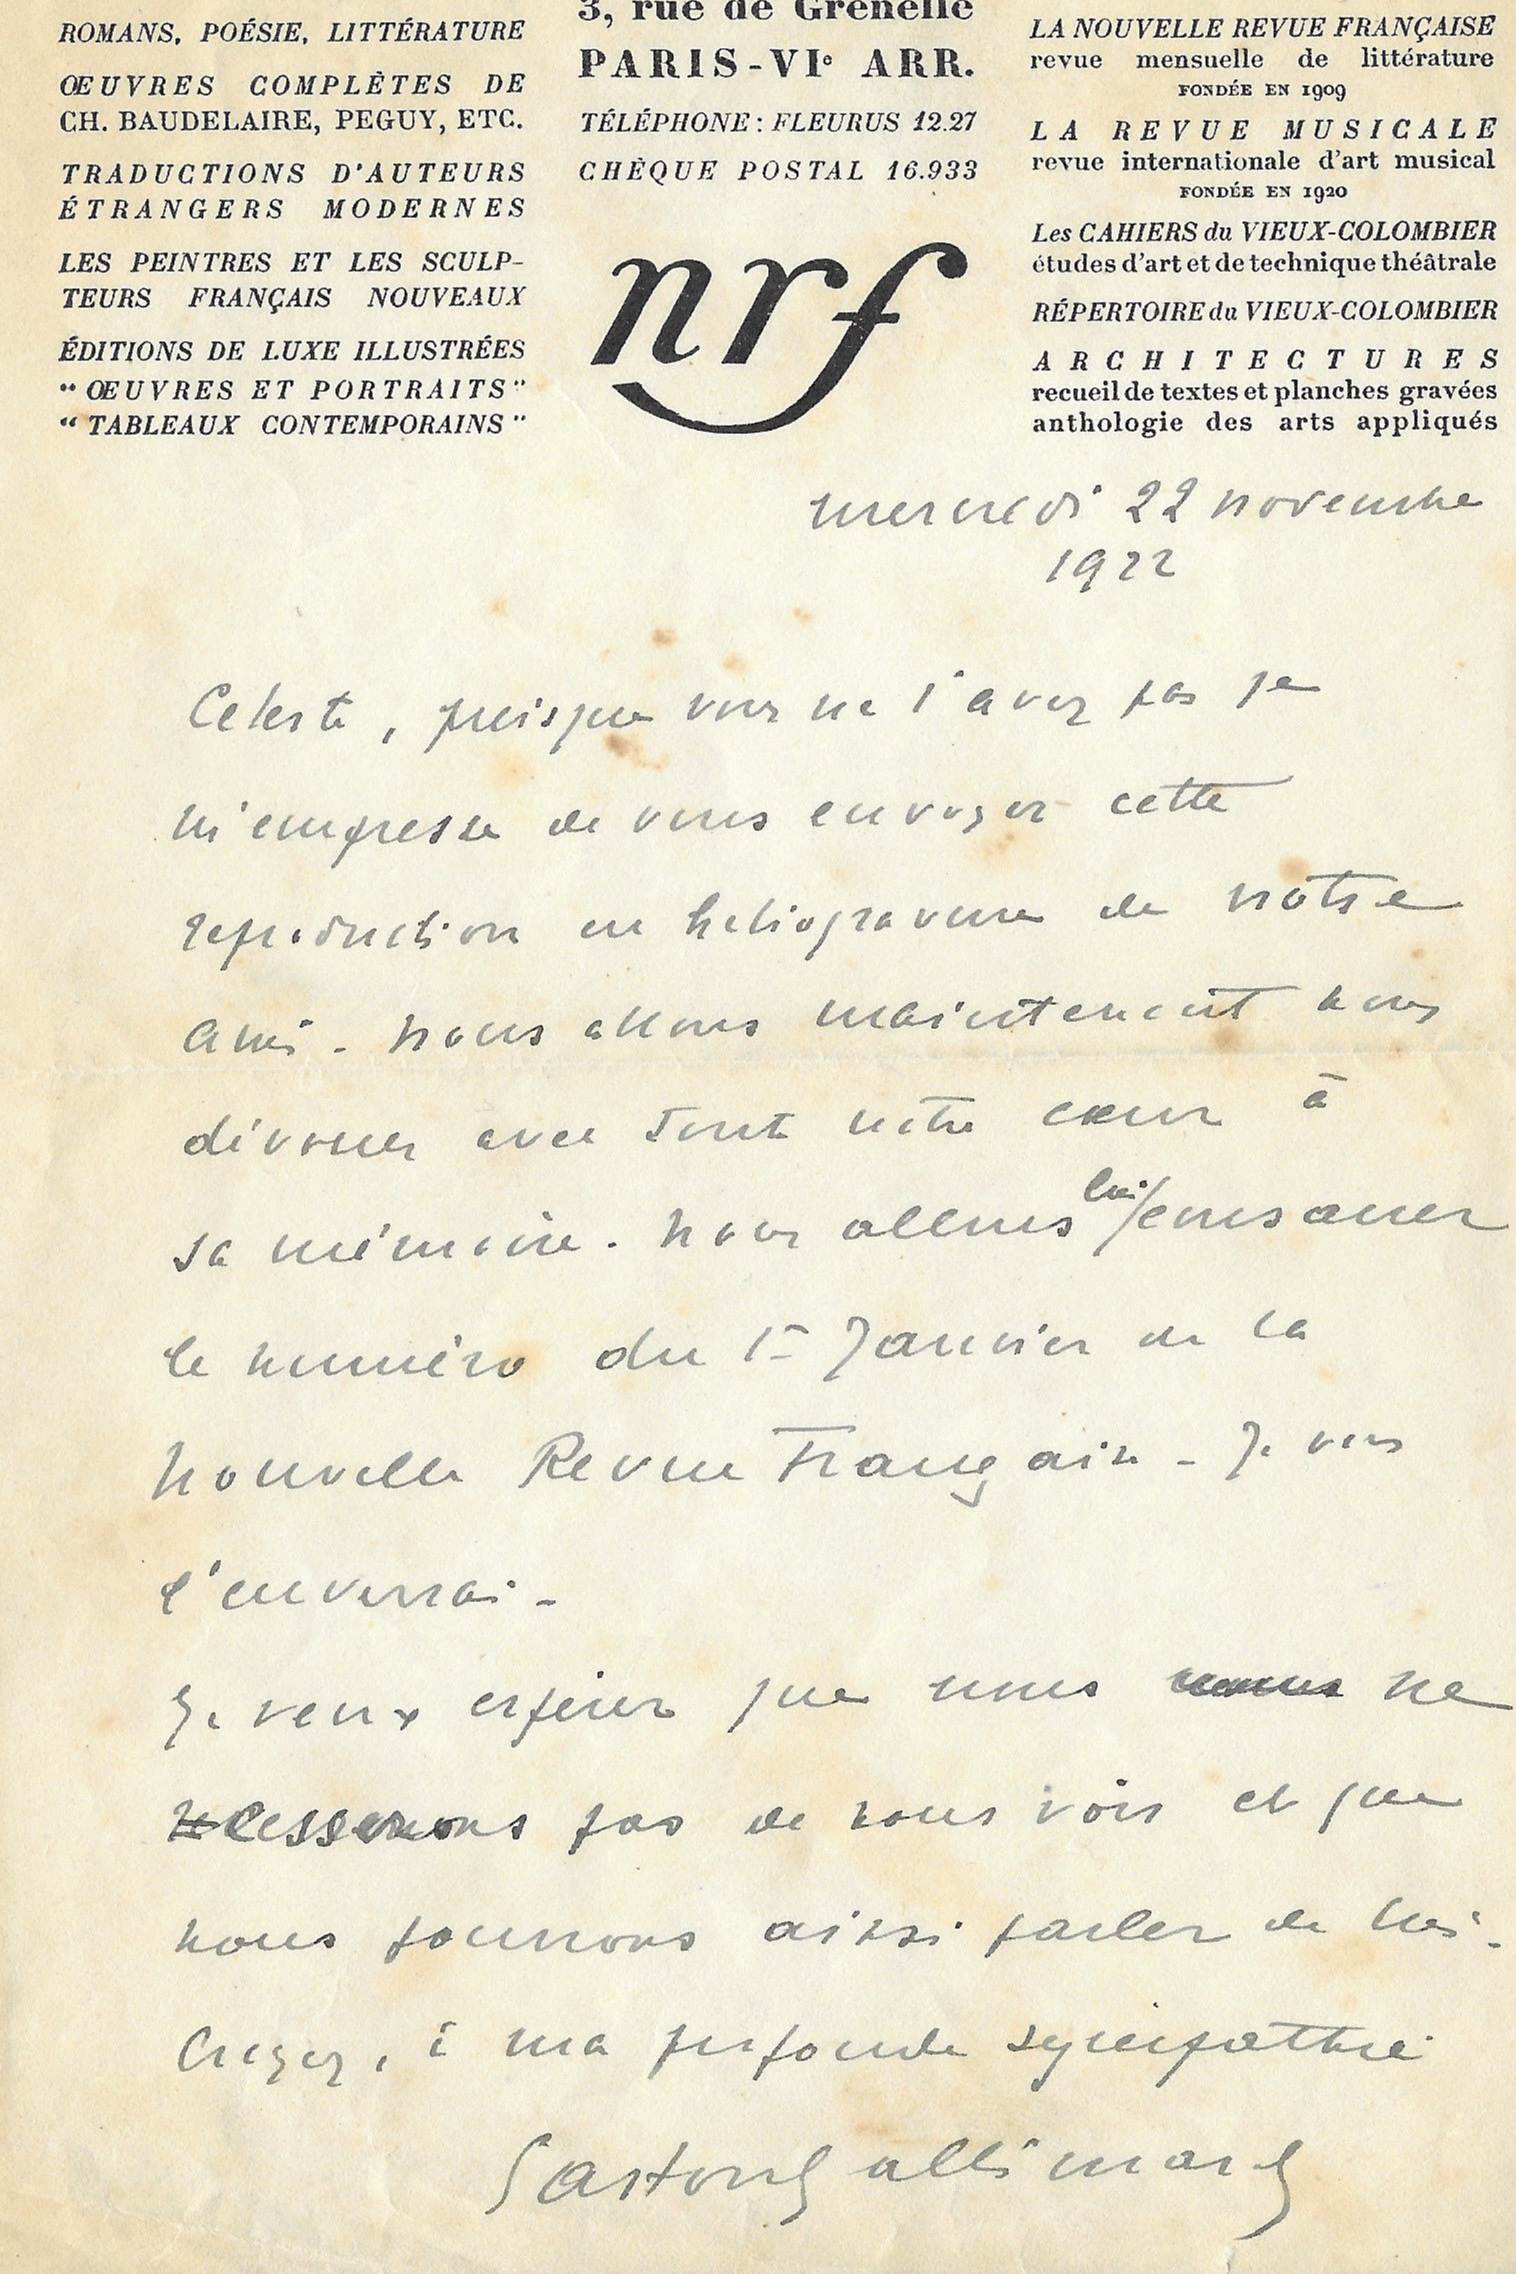 ROMANS, POÉSIE, LITTÉRATURE
ŒUVRES COMPLÈTES DE
CH. BAUDELAIRE, PEGUY, ETC.
TRADUCTIONS D'AUTEURS
ÉTRANGERS MODERNES
LES PEINTRES ET LES SCULP-
TEURS FRANÇAIS NOUVEAUX
ÉDITIONS DE LUXE ILLUSTRÉES
“ ŒUVRES ET PORTRAITS ”
“ TABLEAUX CONTEMPORAINS ”
3, rue de Grenelle
PARIS-VIe ARR.
TÉLÉPHONE : FLEURUS 12.27
CHÈQUE POSTAL 16.933
nrf
LA NOUVELLE REVUE FRANÇAISE
revue mensuelle de littérature
FONDÉE EN 1909
LA REVUE MUSICALE
revue internationale d'art musical
FONDÉE EN 1920
Les CAHIERS du VIEUX-COLOMBIER
études d'art et de technique théâtrale
RÉPERTOIRE du VIEUX-COLOMBIER
ARCHITECTURES
recueil de textes et planches gravées
anthologie des arts appliqués
mercredi 22 novembre
1922
Celeste, puisque vous ne l'avez pas je
m'empresse de vous envoyer cette
reproduction en heliogravure de notre
ami - Nous allons maintenant nous
dévouer avec tout notre cœur à
sa mémoire. Nous allons lui consacrer
le numéro du 1er Janvier de la
Nouvelle Revue Française - Je vous
l'enverrai -
Je veux espérer que nous ne
cesserons pas de nous voir et que
nous pourrons ainsi parler de lui -
Croyez, à ma profonde sympathie
Gaston Gallimard